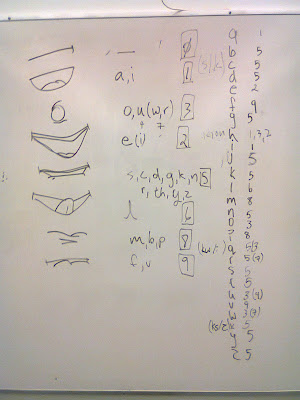 a 1
b 5
c 5
d 5
e 2
f 9
g 5
h 1,3,2
i 1
j 5
k 5
l 6
m 8
n 5
o 3
p 8
q
r
s 5
t 5
u
v 9
w 3(7)
x 5
y 5
z 5
— , 0
a,i 1 (s/k)
o,u(w,r) 3
4 7
e(i) 2
s,c,d,g,k,n 5
r,th,y,z
l 6
m,b,p 8
f,v 9